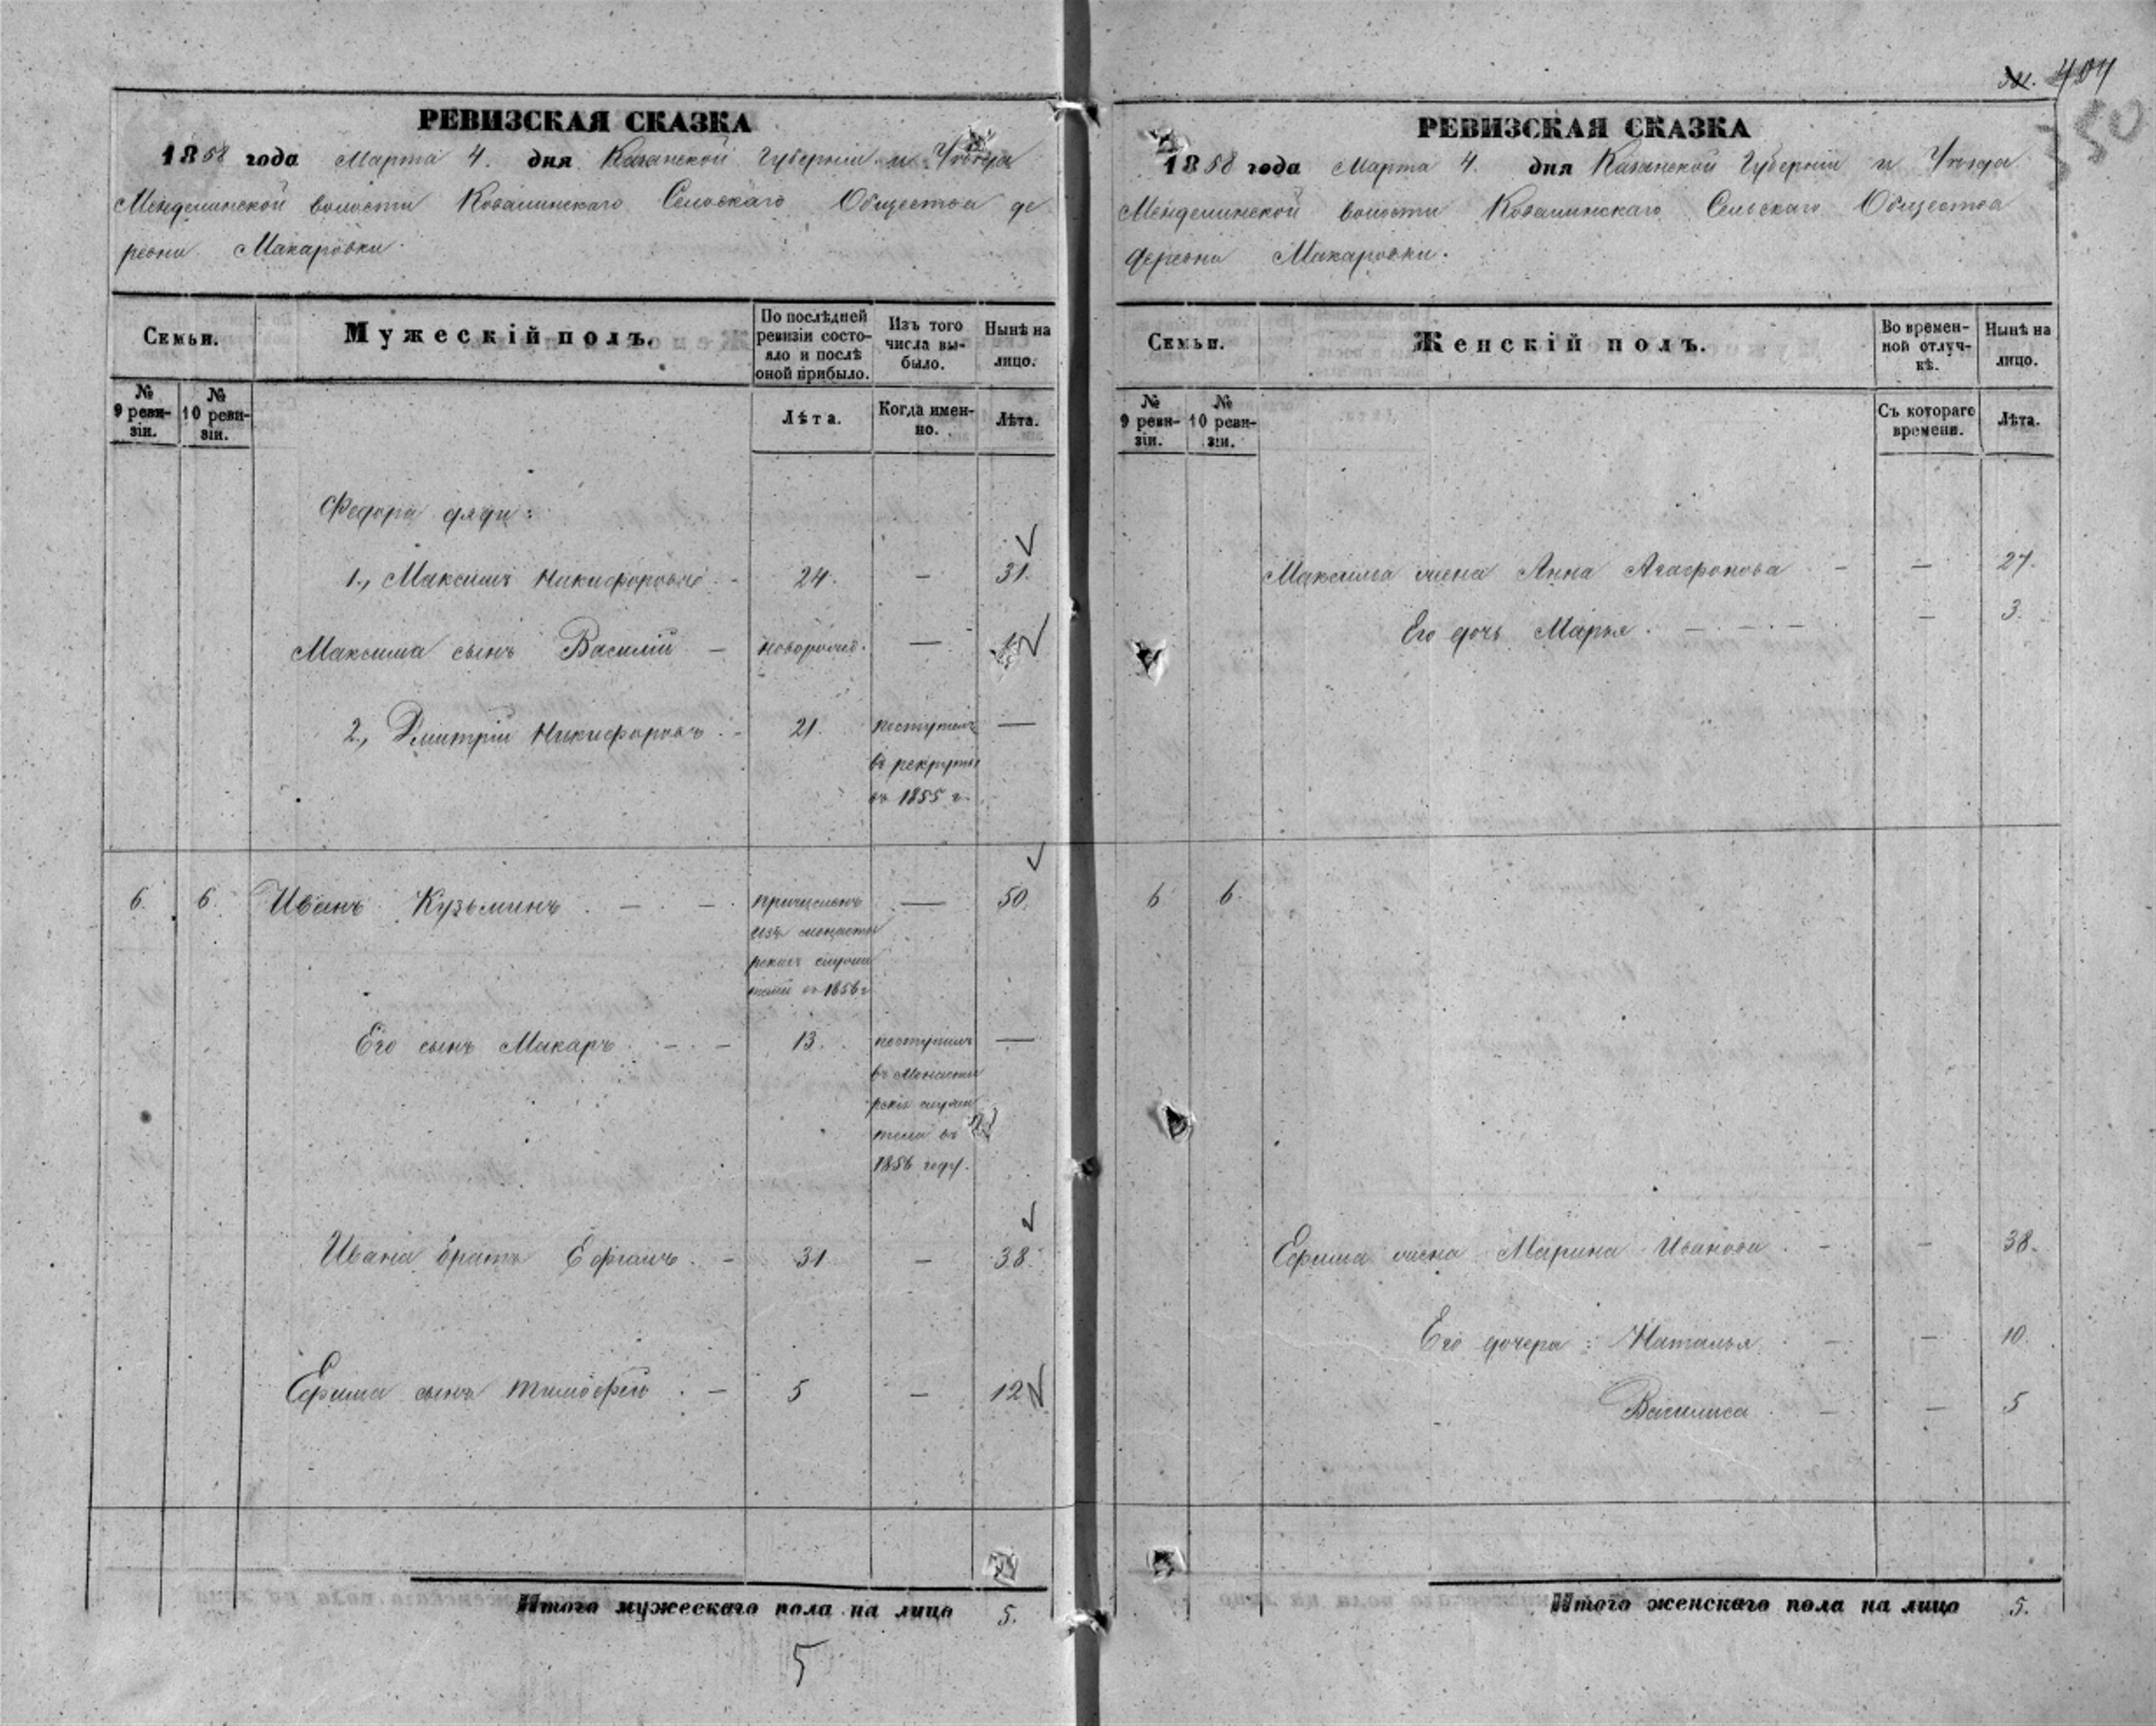 404
350
РЕВИЗСКАЯ СКАЗКА
1858 года Марта 4. дня Казанской Губерніи и Уѣзда
Менделинской волости Ковалинскаго Сельскаго Общества де
ревни Макаровки.
Семьи.
Мужескій полъ.
По послѣдней
ревизіи состо-
яло и послѣ
оной прибыло.
Изъ того
числа вы-
было.
Нынѣ на
лицо.
№
9 реви-
зіи.
№
10 реви-
зіи.
Лѣта.
Когда имен-
но.
Лѣта.
Федора дяди:
1., Максимъ Никифоровъ - 24. — 31.
Максима сынъ Василій — новорожд. —
2., Дмитрій Никифоровъ. - 21. поступилъ —
въ рекруты
въ 1855 г.
6. 6. Иванъ Кузьминъ. — . — . причисленъ — 50.
изъ монасты
рскихъ служи
телей въ 1856 г
Его сынъ Макаръ. — . — 13. поступилъ —
въ Монасты
рскіе служи
тели въ
1856 году.
Ивана братъ Ефимъ. — 31 — 38.
Ефима сынъ Тимофей . — 5 — 12
Итого мужескаго пола на лицо 5.
5
РЕВИЗСКАЯ СКАЗКА
1858 года Марта 4. дня Казанской Губерніи и Уѣзда
Менделинской волости Ковалинскаго Сельскаго Общества
деревни Макаровки.
Семьи.
Женскій полъ.
Во времен-
ной отлуч-
кѣ.
Нынѣ на
лицо.
№
9 реви-
зіи.
№
10 реви-
зіи.
Съ котораго
времени.
Лѣта.
Максима жена Анна Агафонова - — 27.
Его дочь Марья. — . — . — — 3.
6 6.
Ефима жена Марина Иванова . — — 38.
Его дочери: Наталья. — — 10.
Василиса . — — 5
Итого женскаго пола на лицо 5.